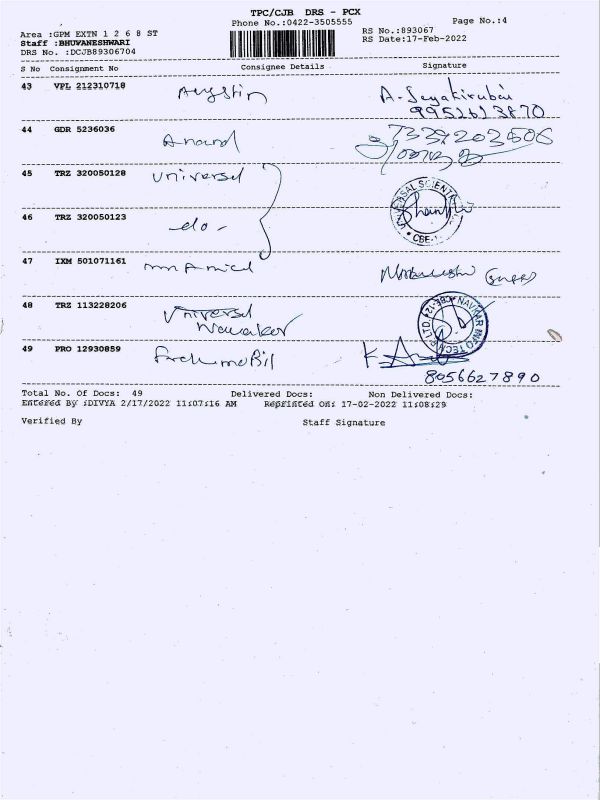 TPC/CJB DRS - PCX
Phone No.:0422-3505555
Page No.:4
Area :GPM EXTN 1 2 6 8 ST
RS No.:893067
Staff :BHUVANESHWARI
RS Date:17-Feb-2022
DRS No. :DCJB89306704
S No Consignment No Consignee Details Signature
43 VPL 212310718 Augstin A. Jeyakirubai
9952613870
44 GDR 5236036 Anand 7339203506
45 TRZ 320050128 Universel
46 TRZ 320050123 -do- Shanthi
UNIVERSAL SCIENT
CBE-1
47 IXM 501071161
48 TRZ 113228206 Universel
Navakar
NAVKAR INFO TECH P LTD CBE-12
49 PRO 12930859
8056627890
Total No. Of Docs: 49 Delivered Docs: Non Delivered Docs:
Entered By :DIVYA 2/17/2022 11:07:16 AM Reprinted On: 17-02-2022 11:08:29
Verified By Staff Signature